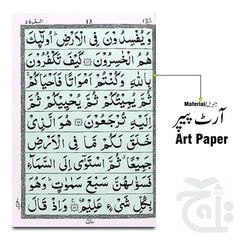 البقرة ٢
13
الٓمّٓ ١
وَيُفْسِدُوْنَ فِى الْاَرْضِ ؕ اُولٰٓئِكَ
هُمُ الْخٰسِرُوْنَ ۞ كَيْفَ تَكْفُرُوْنَ
بِاللّٰهِ وَكُنْتُمْ اَمْوَاتًا فَاَحْيَاكُمْ ۚ
ثُمَّ يُمِيْتُكُمْ ثُمَّ يُحْيِيْكُمْ ثُمَّ
اِلَيْهِ تُرْجَعُوْنَ ۞ هُوَ الَّذِىْ
خَلَقَ لَكُمْ مَّا فِى الْاَرْضِ
جَمِيْعًا ۗ ثُمَّ اسْتَوٰٓى اِلَى السَّمَآءِ
فَسَوّٰىهُنَّ سَبْعَ سَمٰوٰتٍ ؕ وَهُوَ
بِكُلِّ شَىْءٍ عَلِيْمٌ ۞ وَاِذْ قَالَ
Material/میٹریل
آرٹ پیپر
Art Paper